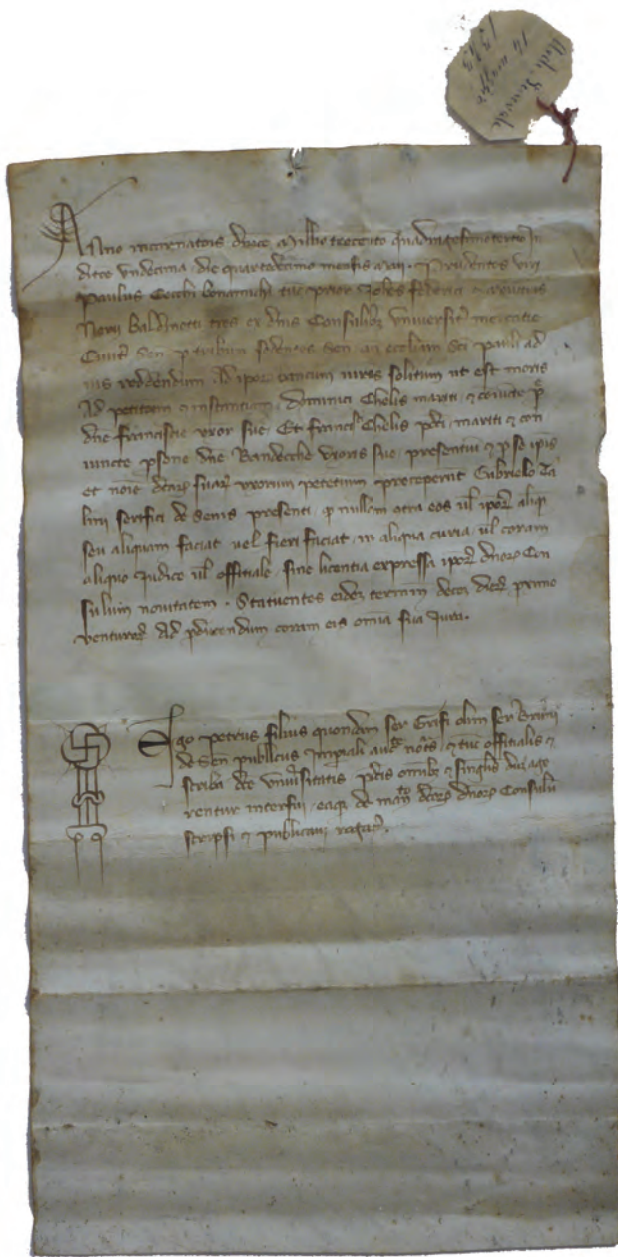 1343
14 maggio
Anno incarnatois dnice Millio trecento quadragesimotertio In
ditce undecima die quartodecimo mensis maii. Prudentes viri
Paulus Cecchi bonamichi tuc prior Joles federici
Nerii Baldinetti tres ex dnis Consulibz Universit mercatie
Civit Sen p tribunli sedentes Sen ecclam Sci Pauli ad
ius reddendum Ad ipor bancum iuris solitum ut est moris
Ad petitoem et instantiam Chelis mariti et coniucte p
dne francische uxor sue. Et francisi Chelis pdti mariti et con
iuncte psone dne Bandecche uxoris sue presentiu et p se ipis
et noie dcar suar uxorum petetium preceperut Gabrielo
lini serifici de Senis presenti q nullam otra eos ul ipor aliqm
seu aliquam faciat uel fieri faciat in aliqua curia ul coram
aliquo Judice ul offitiale sine licentia expressa ipor dnoro Con
sulum novitatem. Statuentes eidez termin decez dierz primo
venturor Ad pducendum coram eis omia sua Jura.
Ego petrus filius quondam ser Grifi olim ser
de Sen publicus Imperiali auct nots et tuc offitialis et
scriba dce universitatis pdictis omibz et singulis du age
rentur interfui eaqz de man dcarz dnorz Consulu
scripsi et publicaui rogat.